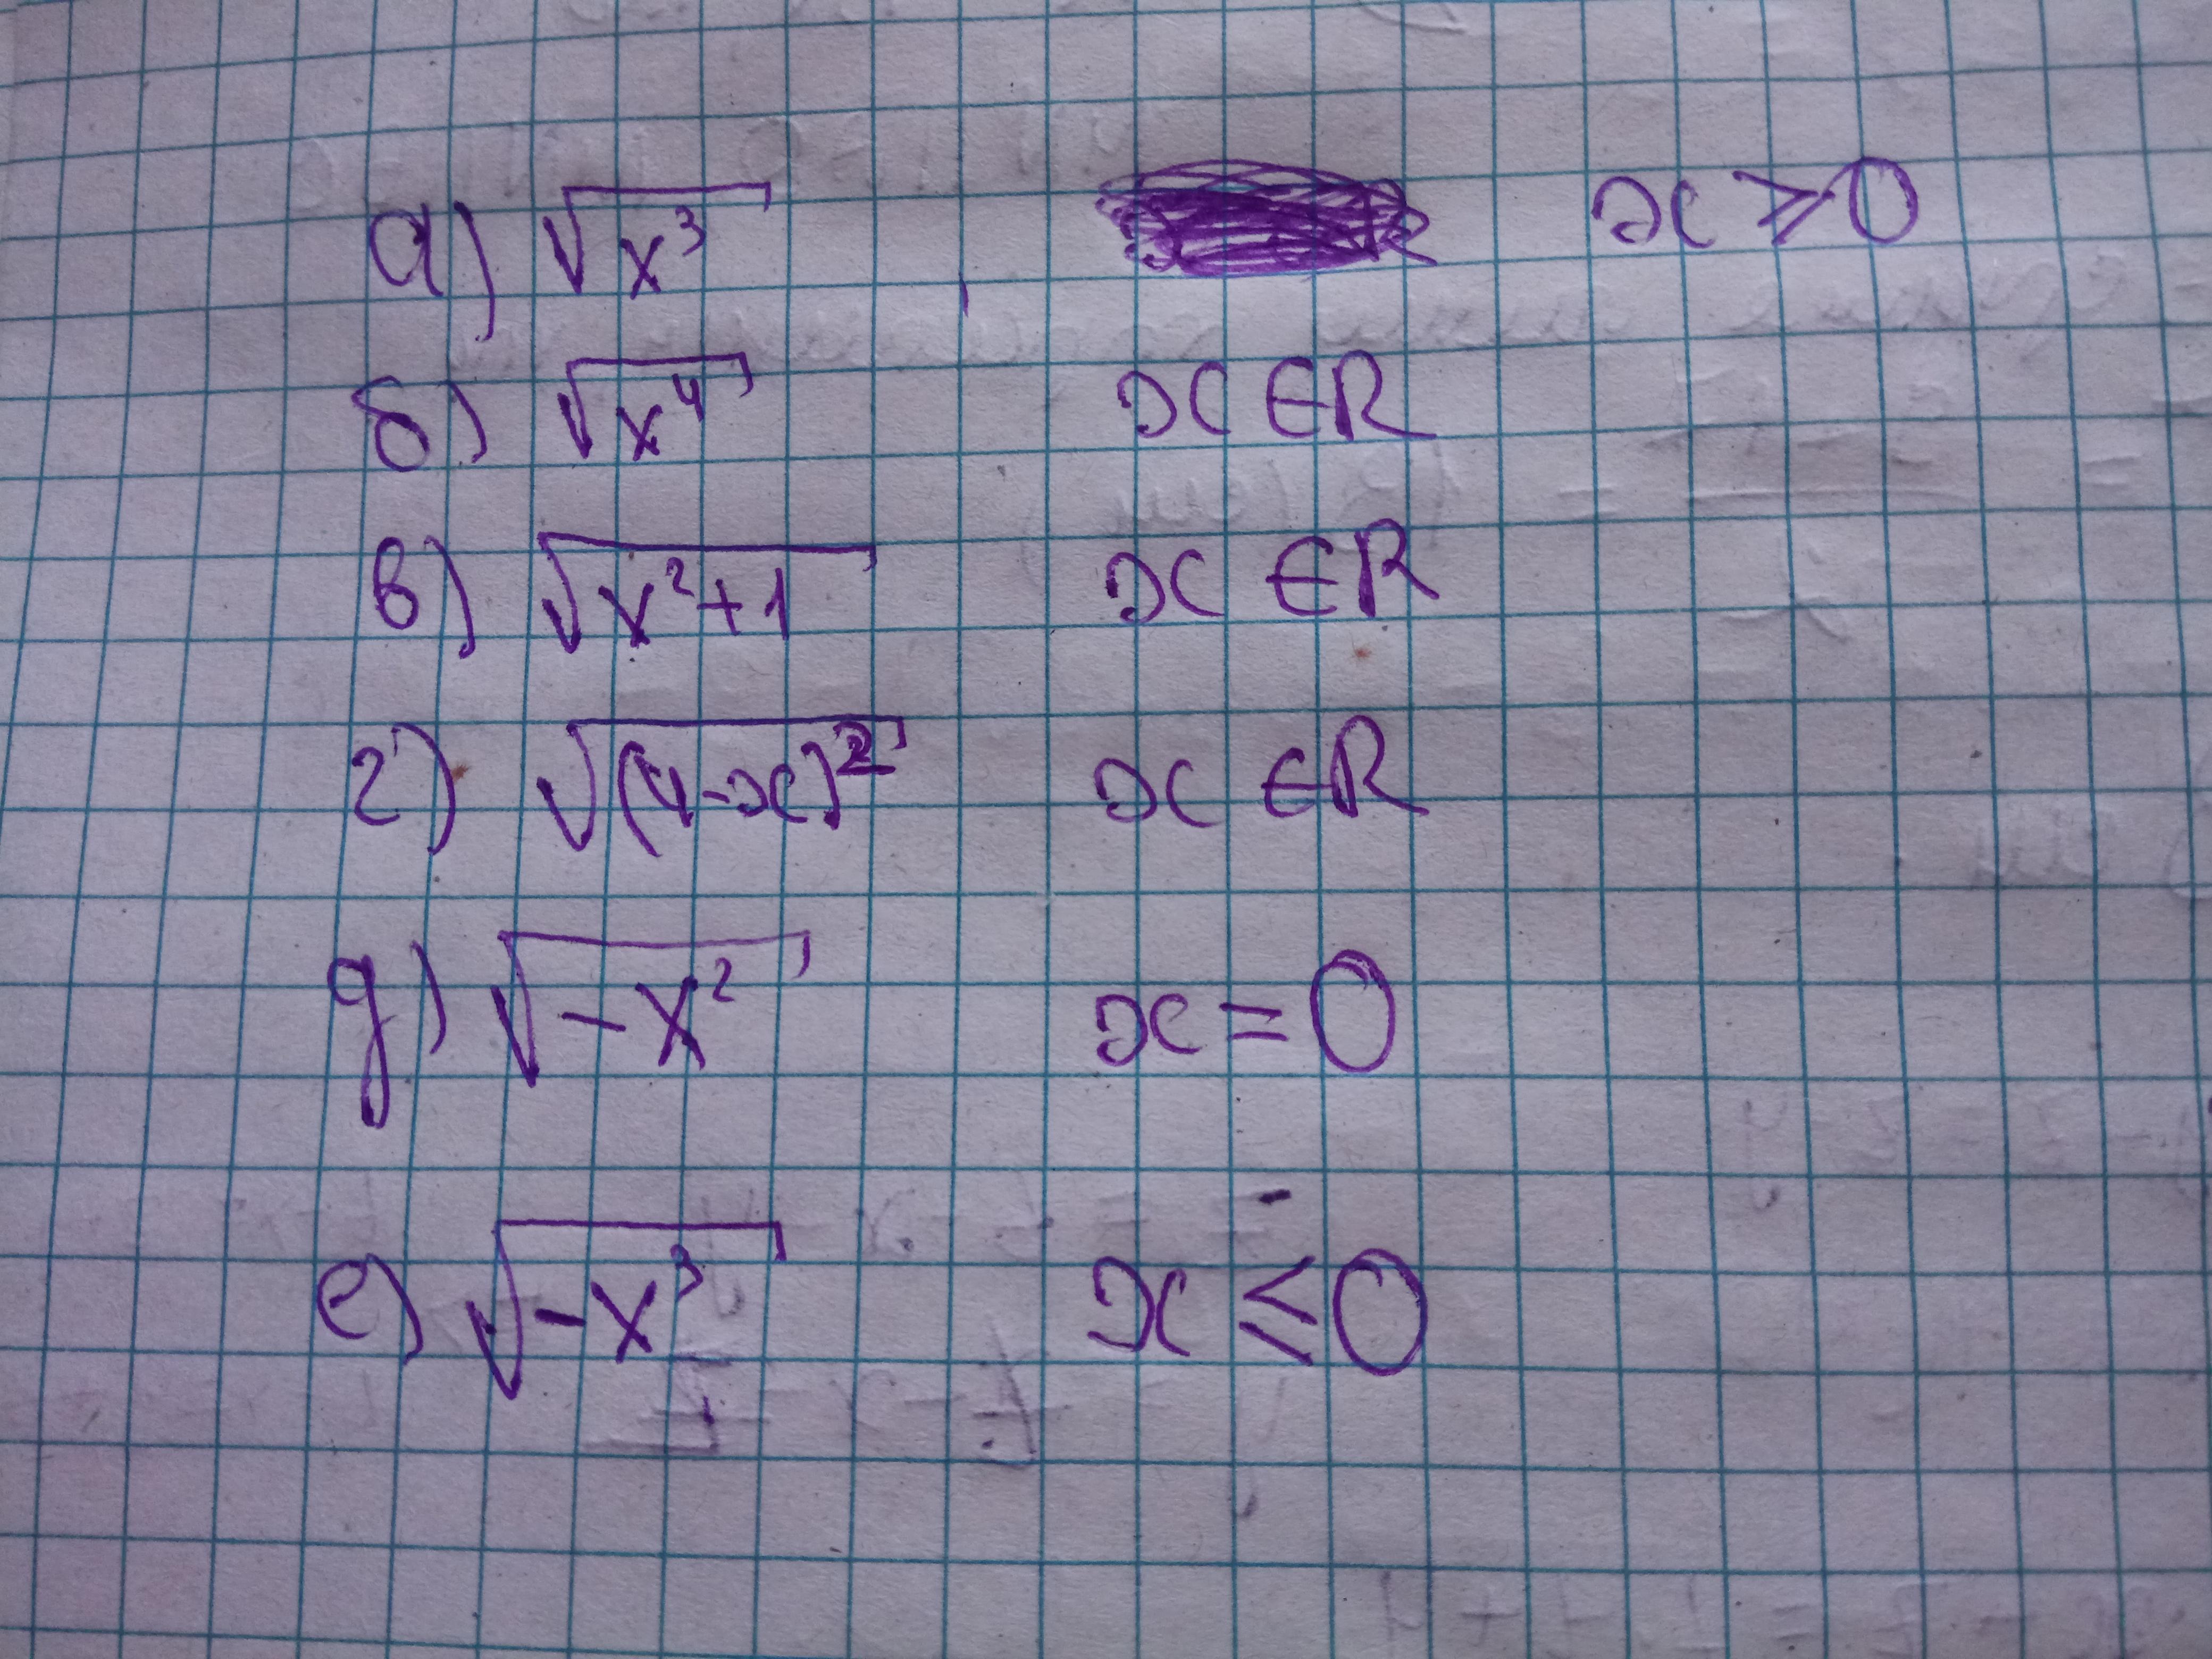 а) √x³ x ⩾ 0
б) √x⁴ x ∈ R
в) √x²+1 x ∈ R
г) √(4-x)² x ∈ R
д) √-x² x = 0
е) √-x³ x ≤ 0